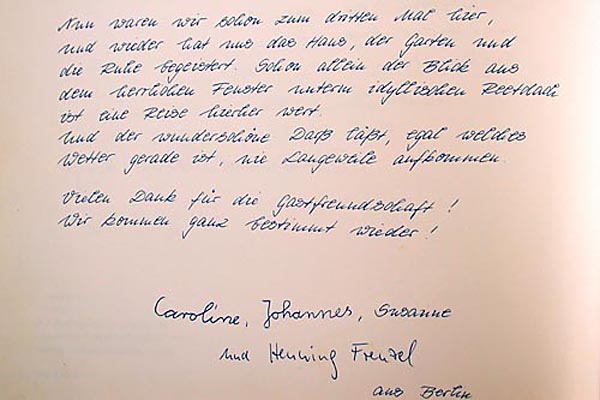 Nun waren wir schon zum dritten Mal hier,
und wieder hat uns das Haus, der Garten und
die Ruhe begeistert. Schon allein der Blick aus
dem herrlichen Fenster unterm idyllischen Reetdach
ist eine Reise hierher wert.
Und der wunderschöne Darß läßt, egal welches
Wetter gerade ist, nie Langeweile aufkommen.
Vielen Dank für die Gastfreundschaft!
Wir kommen ganz bestimmt wieder!
Caroline, Johannes, Susanne
und Henning Frenzel
aus Berlin